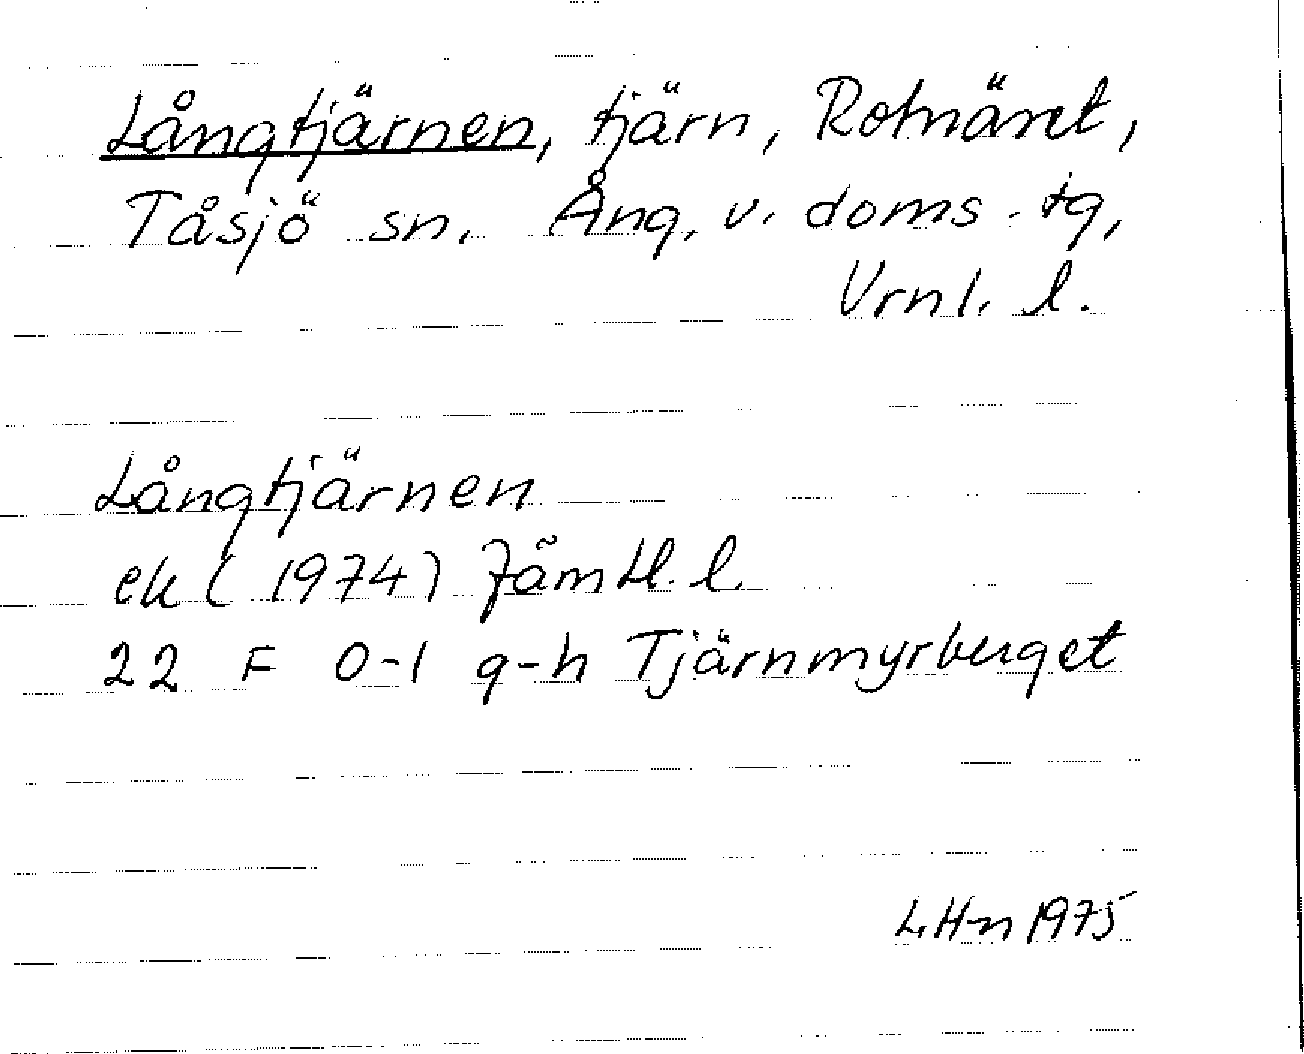 Långtjärnen, tjärn, Rotnäset,
Tåsjö sn. Ång. v. doms. tg,
Vrnl. l.
Långtjärnen
ek (1974) Jämtl. l.
22 F 0-1 g-h Tjärnmyrberget
L. H-n 1975